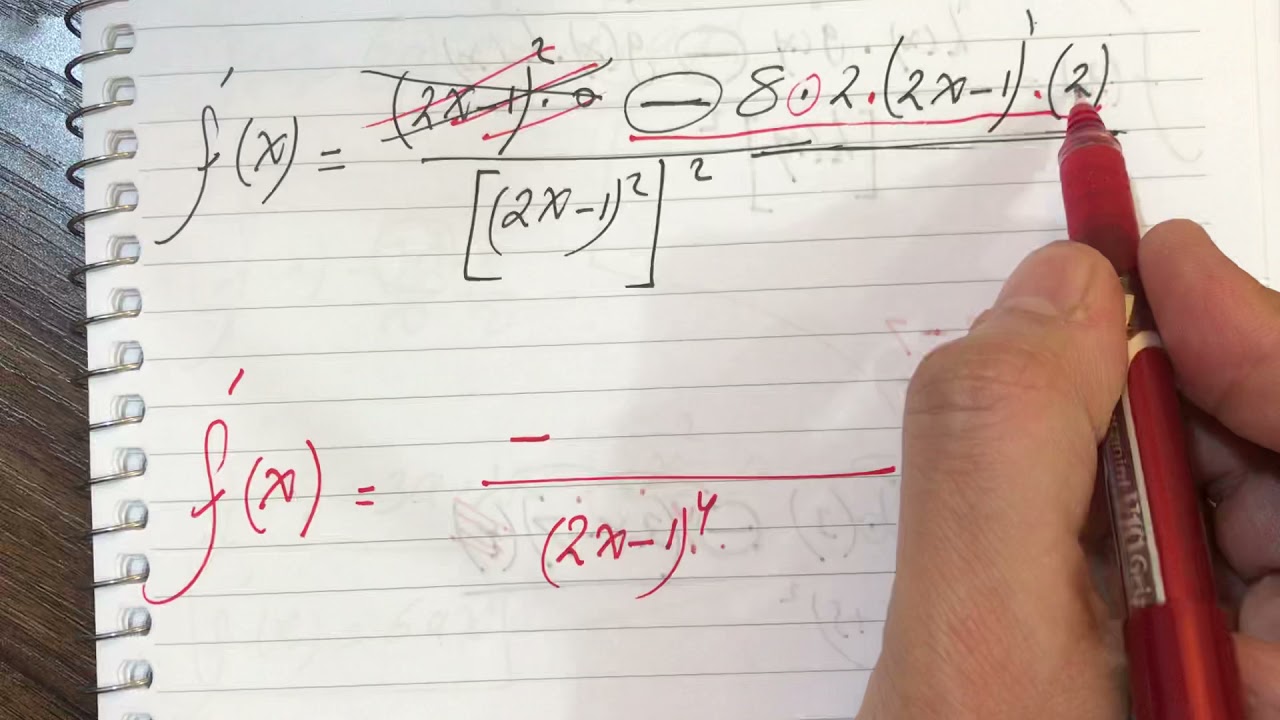 f'(x) = (2x-1)² · 0 − 8 · 2 · (2x-1)¹ · (2)
[(2x-1)²]²
f'(x) = −
(2x-1)⁴